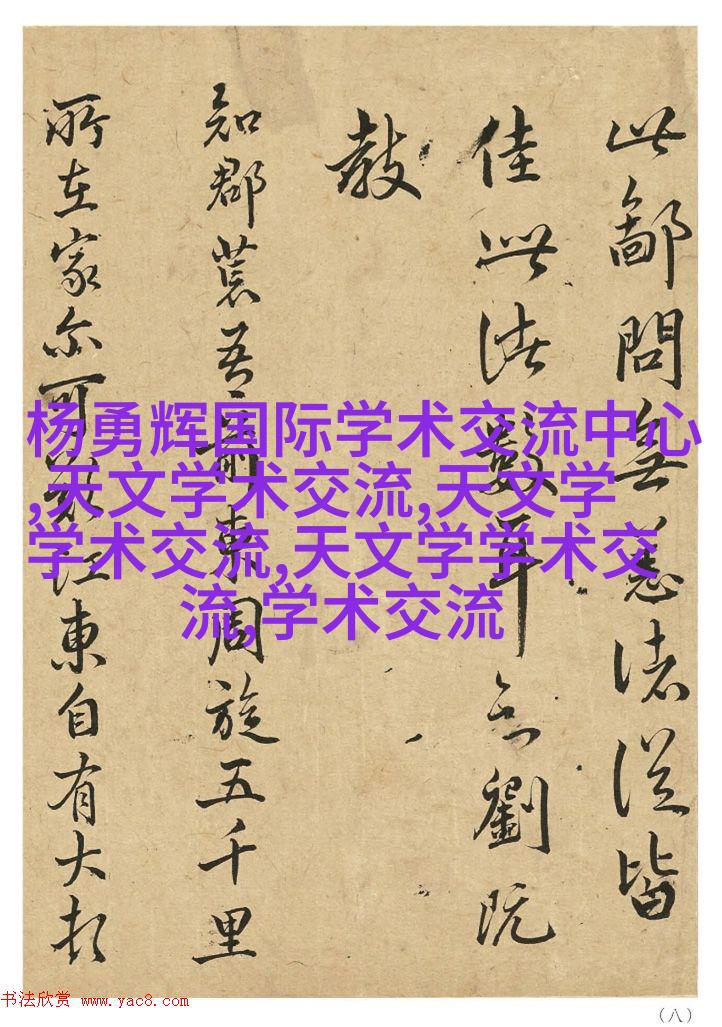 此鄙問無恙諸從皆
佳此諸數年劉阮
教
知郡荒吾前東周旋五千里
所在家尔可歎江東自有大
杨勇辉国际学术交流中心
,天文学术交流,天文学
学术交流,天文学学术交
流,学术交流
书法欣赏 www.yac8.com
（八）